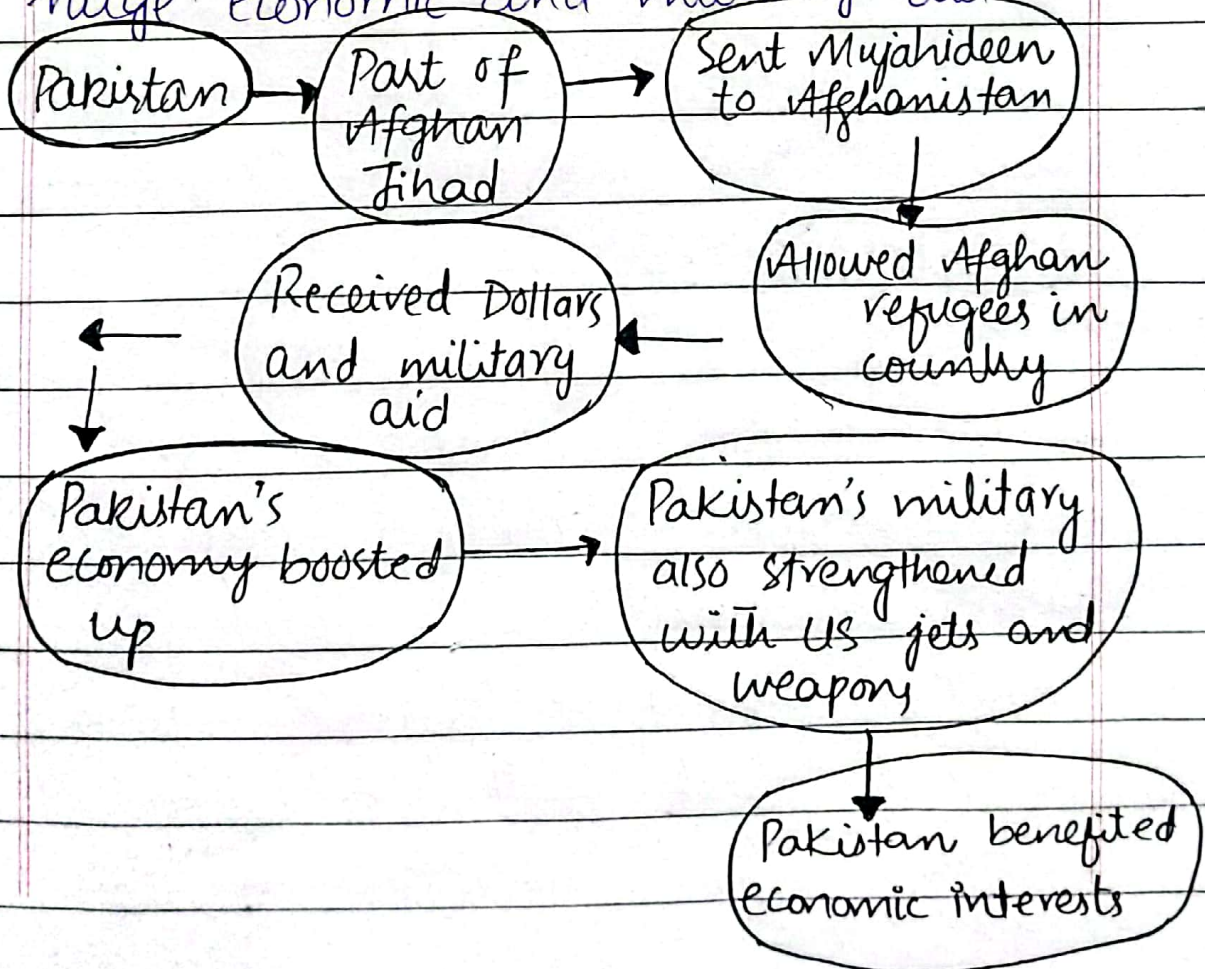 huge economic and
Pakistan
Part of
Afghan
Jihad
Sent Mujahideen
to Afghanistan
Allowed Afghan
refugees in
country
Received Dollars
and military
aid
Pakistan's
economy boosted
up
Pakistan's military
also strengthened
with US jets and
weapons
Pakistan benefited
economic interests